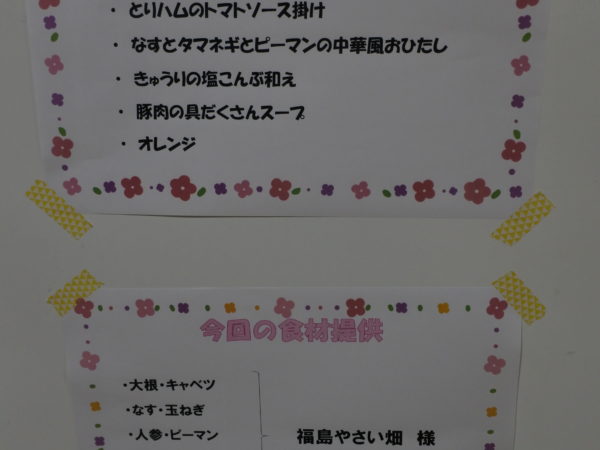 ・ とりハムのトマトソース掛け
・ なすとタマネギとピーマンの中華風おひたし
・ きゅうりの塩こんぶ和え
・ 豚肉の具だくさんスープ
・ オレンジ
今回の食材提供
・大根・キャベツ
・なす・玉ねぎ
・人参・ピーマン
福島やさい畑 様